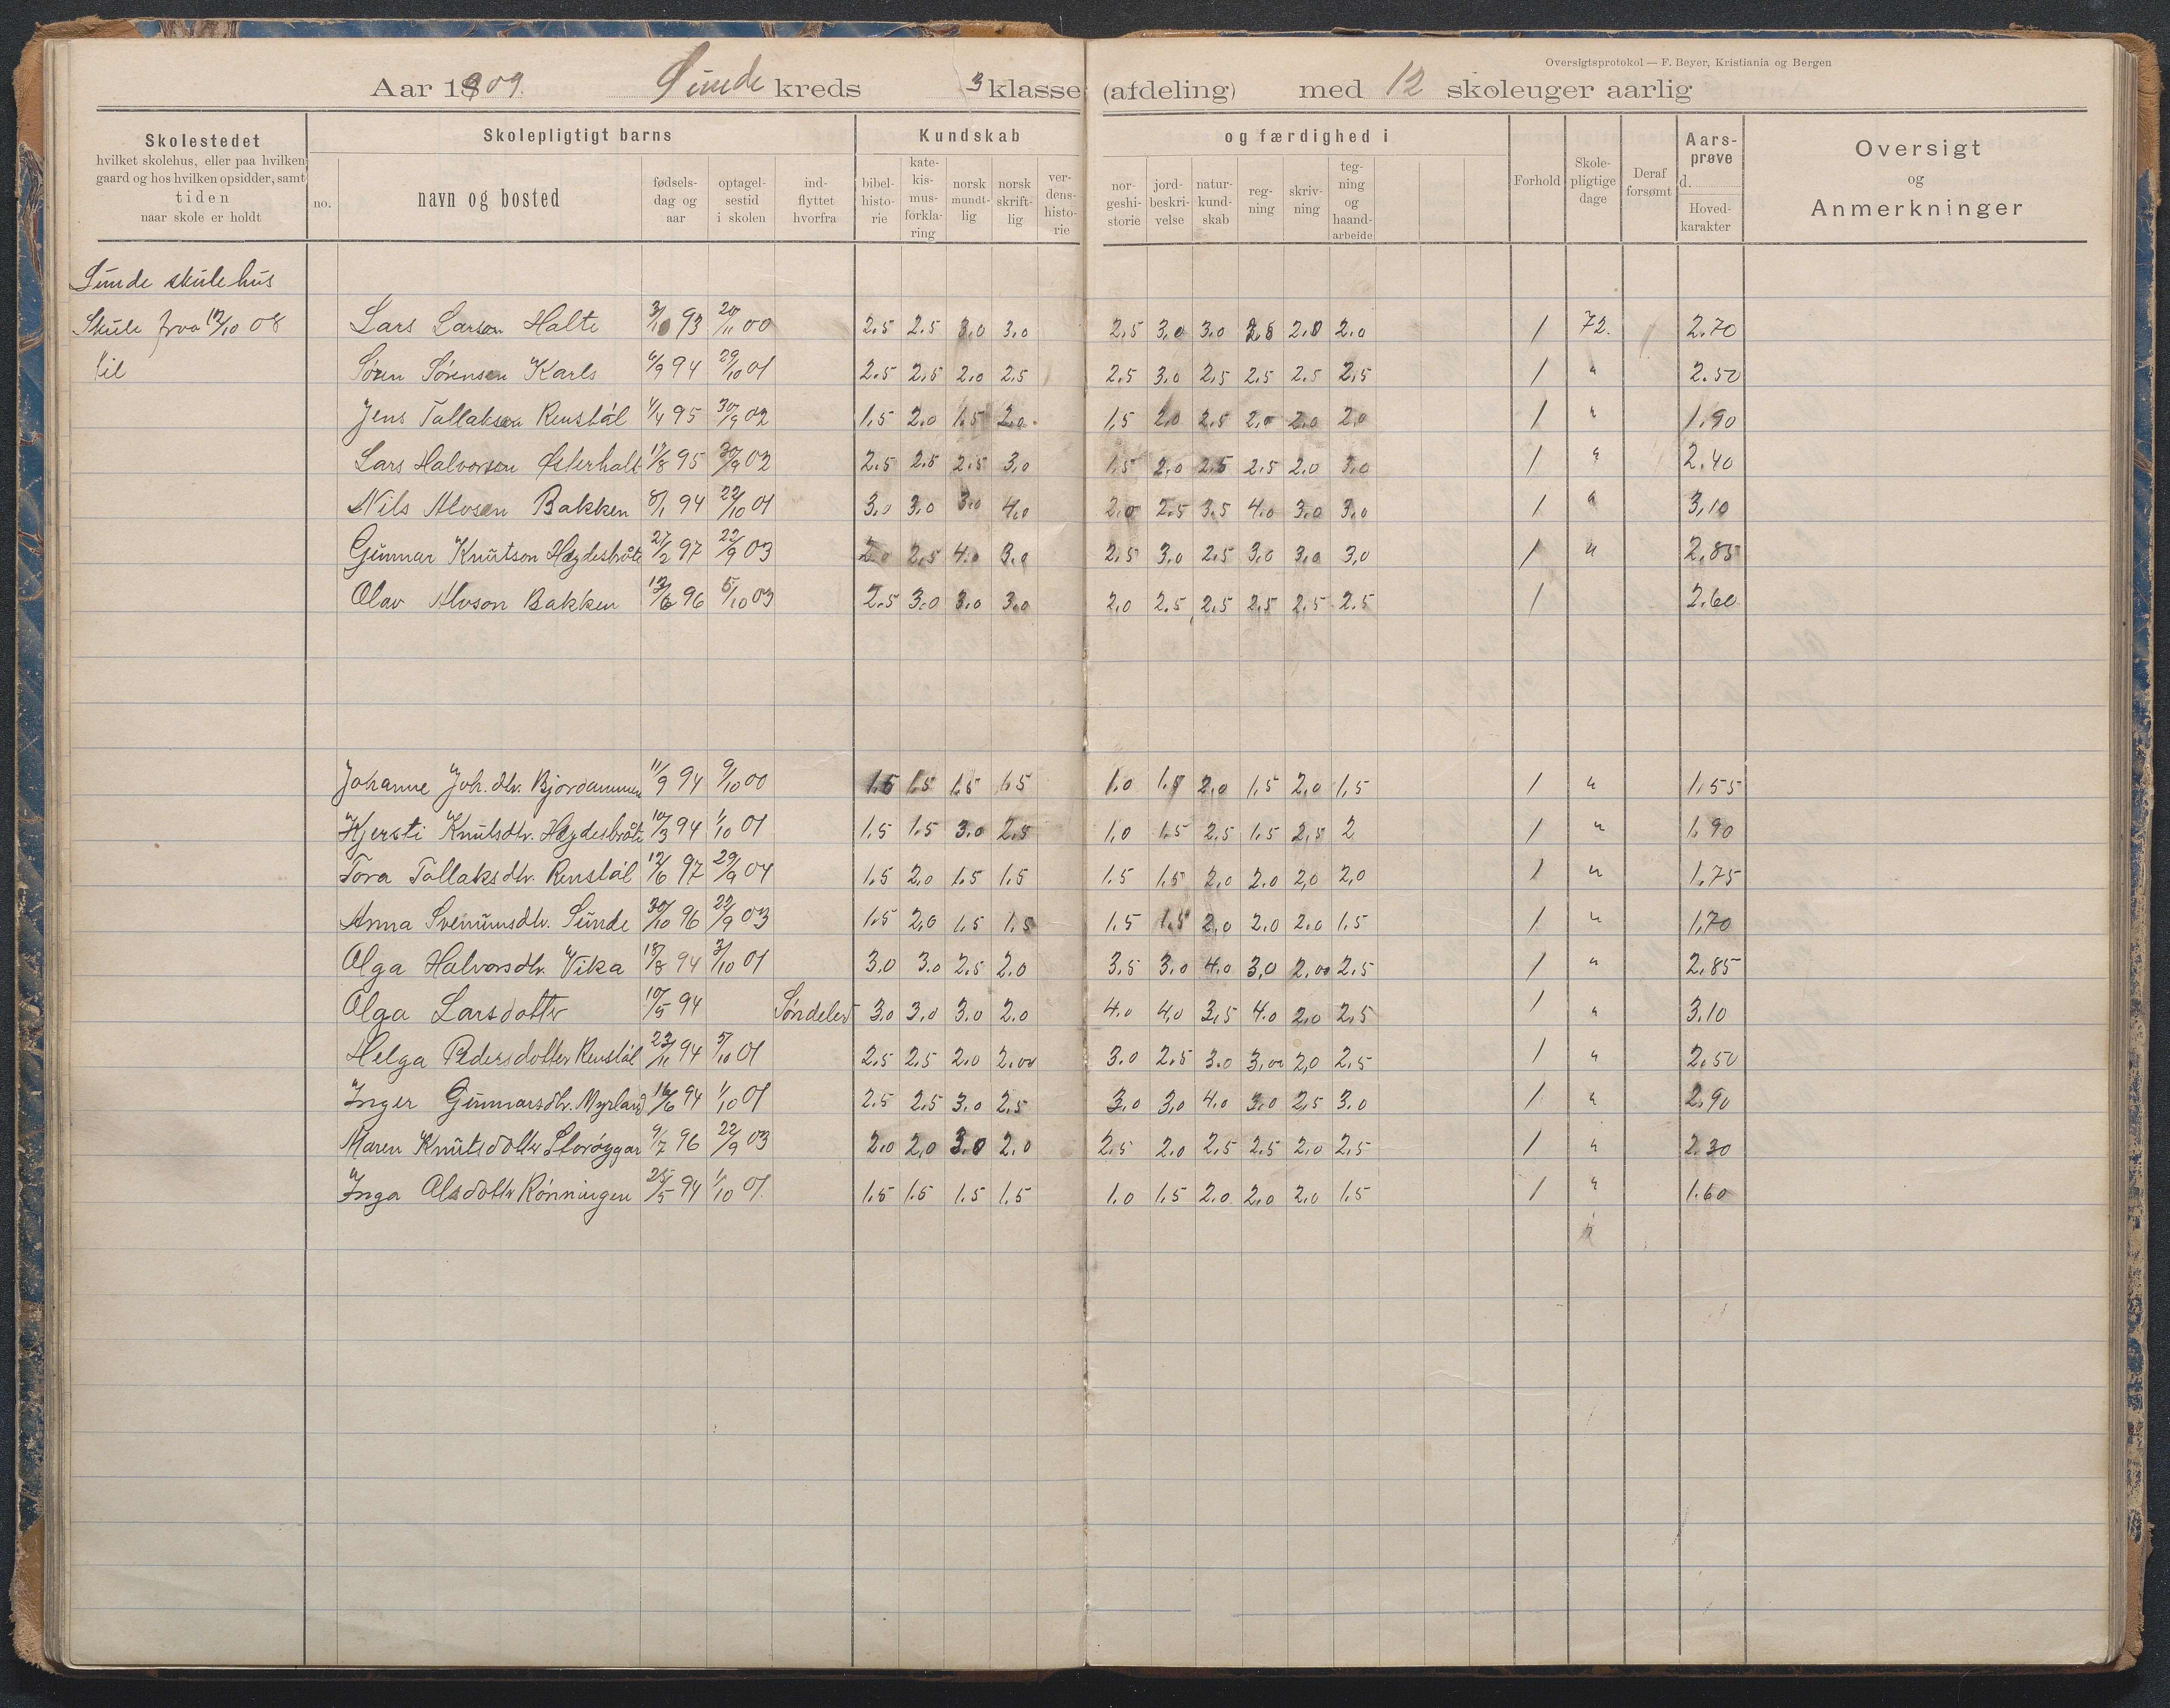 Oversigtsprotokol — F. Beyer, Kristiania og Bergen
Aar 1909. Sunde kreds 3 klasse (afdeling) med 12 skoleuger aarlig
Skolestedet
hvilket skolehus, eller paa hvilken
gaard og hos hvilken opsidder, samt
tiden
naar skole er holdt
Skolepligtigt barns
no.
navn og bosted
fødsels-
dag og
aar
optagel-
sestid
i skolen
ind-
flyttet
hvorfra
Kundskab
bibel-
histo-
rie
kate-
kis-
mus-
forkla-
ring
norsk
mundt-
lig
norsk
skrift-
lig
ver-
dens-
histo-
rie
og færdighed i
nor-
geshi-
storie
jord-
beskri-
velse
natur-
kund-
skab
reg-
ning
skriv-
ning
teg-
ning
og
haand-
arbeide
Forhold
Skole-
pligtige
dage
Deraf
forsømt
Aars-
prøve
d.
Hoved-
karakter
Oversigt
og
Anmerkninger
Sunde skulehus
Skule fraa 12/10 08 Lars Larson Halte 3/10 93 20/11 00 2.5 2.5 3.0 3.0 2.5 3.0 3.0 2.5 2.0 2.0 / 72. 2.70
til Søren Sørensen Karls 6/9 94 29/10 01 2.5 2.5 2.0 2.5 2.5 3.0 2.5 2.5 2.5 2.5 / " 2.50
Jens Tallakson Renstøl 4/4 95 30/9 02 1.5 2.0 1.5 2.0 1.5 2.0 2.5 2.0 2.0 2.0 / " 1.90
Lars Halvorsen Østerholt 17/8 95 30/9 02 2.5 2.5 2.5 3.0 1.5 2.0 2.5 2.5 2.0 3.0 / " 2.40
Nils Alvsen Bakken 8/1 94 22/10 01 3.0 3.0 3.0 4.0 2.0 2.5 3.5 4.0 3.0 3.0 / " 3.10
Gunnar Knutson Høgdesbråte 27/2 97 22/9 03 2.0 2.5 4.0 3.0 2.5 3.0 2.5 3.0 3.0 3.0 / " 2.85
Olav Alvson Bakken 12/6 96 5/10 03 2.5 3.0 3.0 3.0 2.0 2.5 2.5 2.5 2.5 2.5 / 2.60
Johanne Joh.dtr. Bjordammen 11/9 94 9/10 00 1.5 1.5 1.5 1.5 1.0 1.5 2.0 1.5 2.0 1.5 / " 1.55
Kjersti Knutsdtr. Høgdesbråte 10/3 94 1/10 01 1.5 1.5 3.0 2.5 1.0 1.5 2.5 1.5 2.5 2 / " 1.90
Tora Tallaksdtr. Renstøl 12/6 97 29/9 04 1.5 2.0 1.5 1.5 1.5 1.5 2.0 2.0 2.0 2.0 / " 1.75
Anna Svenumsdtr. Sunde 30/10 96 22/9 03 1.5 2.0 1.5 1.5 1.5 1.5 2.0 2.0 2.0 1.5 / " 1.70
Olga Halvorsdtr. Vika 18/8 94 3/10 01 3.0 3.0 2.5 2.0 3.5 3.0 4.0 3.0 2.00 2.5 / " 2.85
Olga Larsdotter 10/5 94 Søndeled 3.0 3.0 3.0 2.0 4.0 4.0 3.5 4.0 2.0 2.5 / " 3.10
Helga Pedersdotter Renstøl 23/11 94 5/10 01 2.5 2.5 2.0 2.00 3.0 2.5 3.0 3.00 2.0 2.5 / " 2.50
Inger Gunnarsdtr. Myrland 16/6 94 1/10 01 2.5 2.5 3.0 2.5 3.0 3.0 4.0 3.0 2.5 3.0 / " 2.90
Maren Knutsdotter Storøygar 9/7 96 22/9 03 2.0 2.0 3.0 2.0 2.5 2.0 2.5 2.5 2.0 2.5 / " 2.30
Inga Olsdottr Rønningen 25/5 94 1/10 01. 1.5 1.5 1.5 1.5 1.0 1.5 2.0 2.0 2.0 1.5 / " 1.60